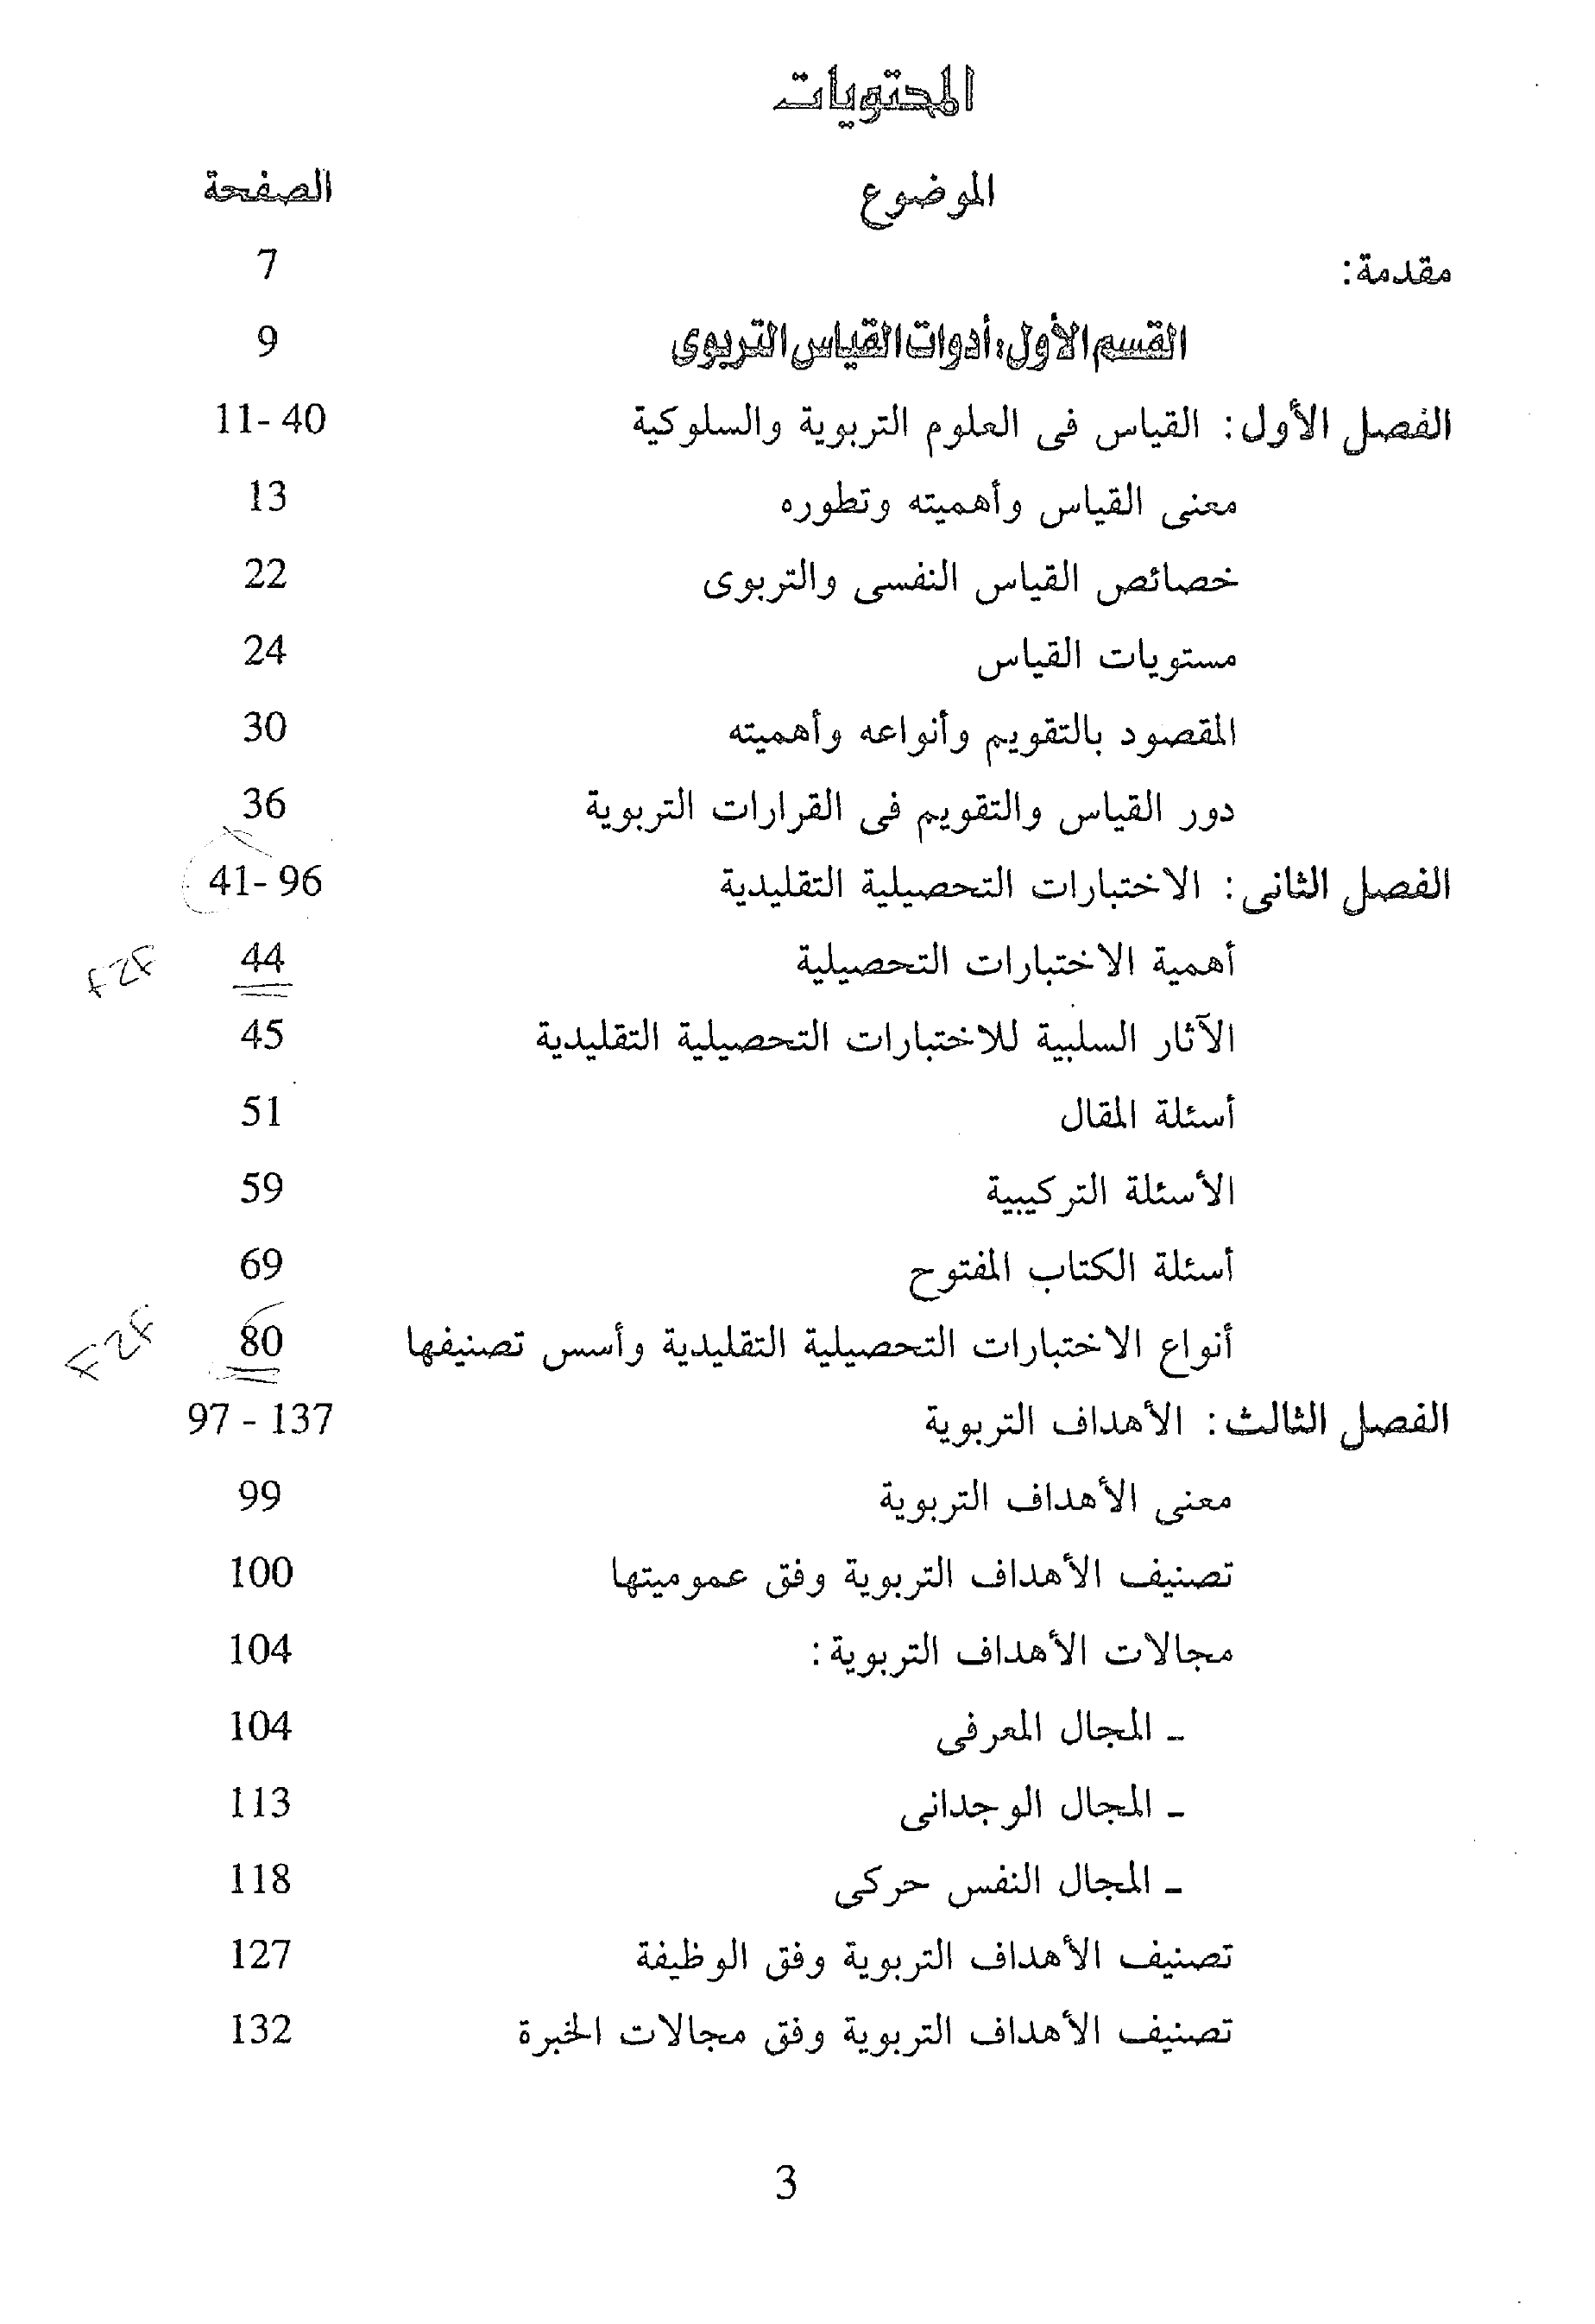 المحتويات
الموضوع الصفحة
مقدمة: 7
القسم الأول: أدوات القياس التربوى 9
الفصل الأول: القياس فى العلوم التربوية والسلوكية 11- 40
معنى القياس وأهميته وتطوره 13
خصائص القياس النفسى والتربوى 22
مستويات القياس 24
المقصود بالتقويم وأنواعه وأهميته 30
دور القياس والتقويم فى القرارات التربوية 36
الفصل الثانى: الاختبارات التحصيلية التقليدية 41- 96
أهمية الاختبارات التحصيلية 44
الآثار السلبية للاختبارات التحصيلية التقليدية 45
أسئلة المقال 51
الأسئلة التركيبية 59
أسئلة الكتاب المفتوح 69
أنواع الاختبارات التحصيلية التقليدية وأسس تصنيفها 80
الفصل الثالث: الأهداف التربوية 97 - 137
معنى الأهداف التربوية 99
تصنيف الأهداف التربوية وفق عموميتها 100
مجالات الأهداف التربوية: 104
ـ المجال المعرفى 104
ـ المجال الوجدانى 113
ـ المجال النفس حركى 118
تصنيف الأهداف التربوية وفق الوظيفة 127
تصنيف الأهداف التربوية وفق مجالات الخبرة 132
3